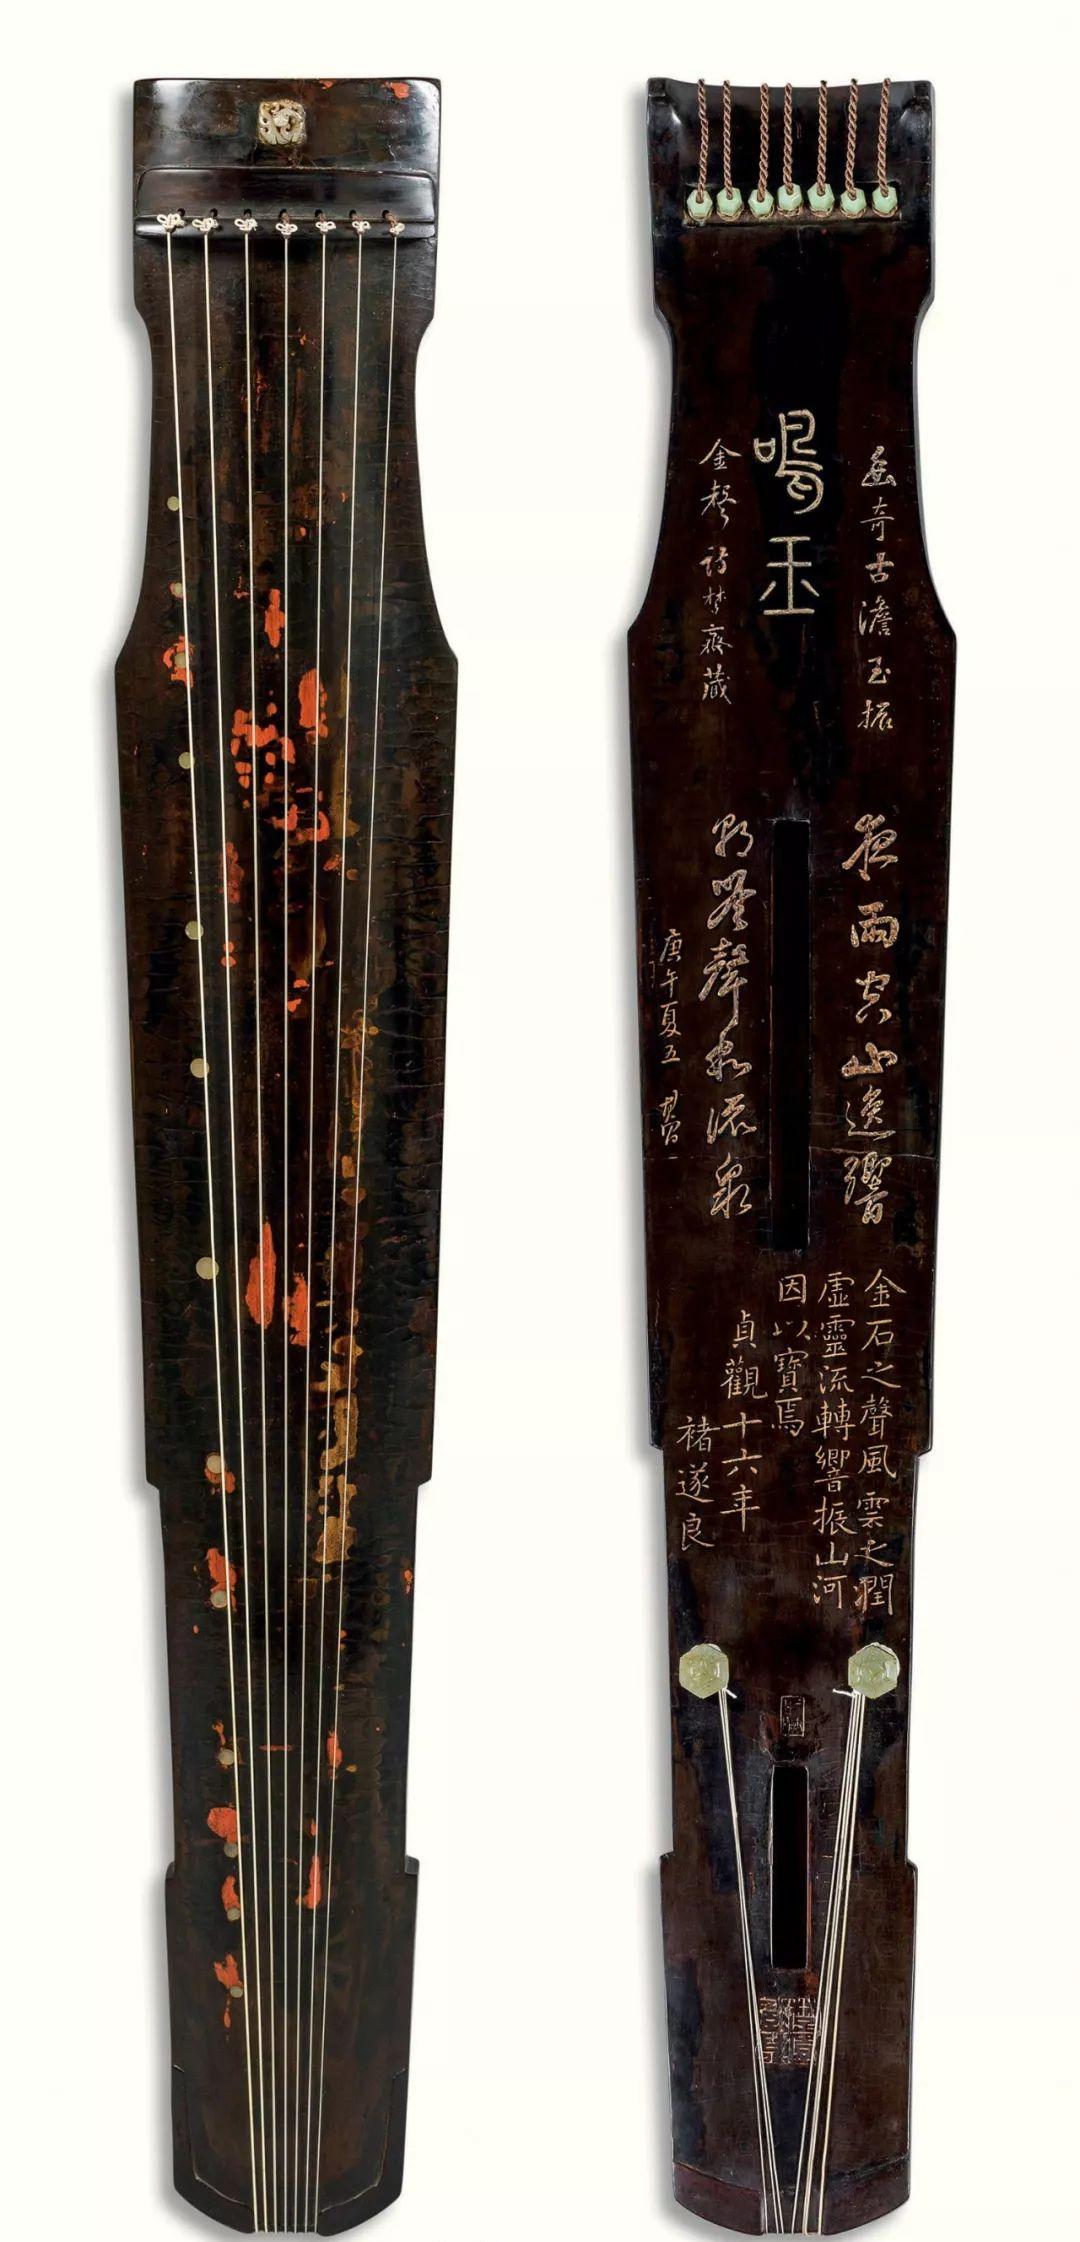 鳴玉
奇古澹玉振
金聲 詩夢齋藏
夜雨空山逸響
聲和流泉
庚午夏五
金石之聲風雲之潤
虛靈流轉響振山河
因以寶焉
貞觀十六年
褚遂良